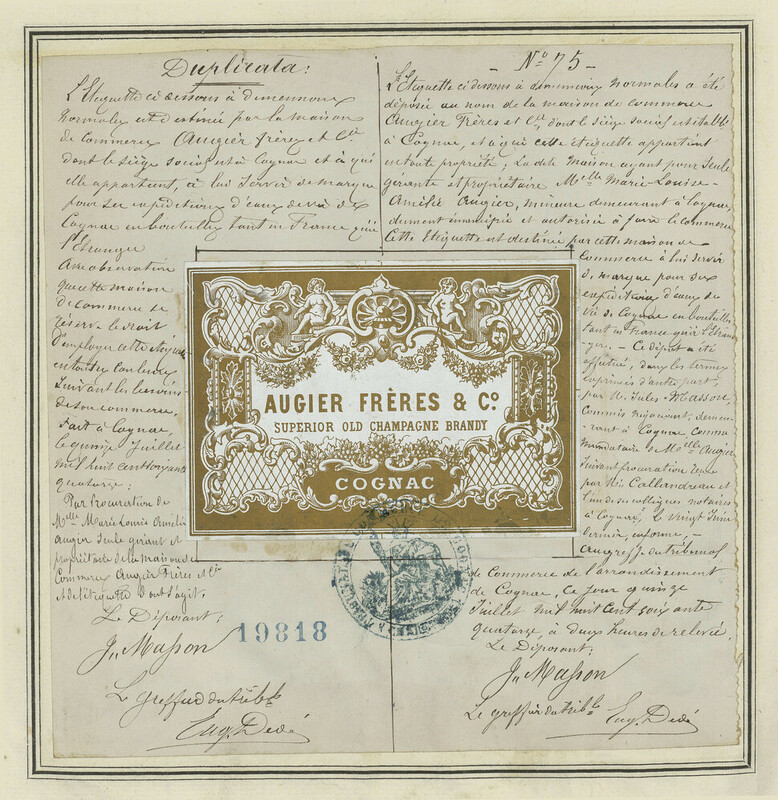 Duplicata :
L'Etiquette ci dessous à dimensions
normales est destinée par la maison
de commerce Augier frères et Cie
dont le siège social est à Cognac et à qui
elle appartient, à lui servir de marque
pour ses expéditions d'eaux de vie de
Cognac en bouteilles tant en France qu'à
l'Etranger
Avec observation
que cette maison
de commerce se
réserve le droit
d'employer cette étiquette
en toutes couleurs
suivant les besoins
de son commerce.
Fait à Cognac
le quinze Juillet
mil huit cent soixante
quatorze :
Par procuration de
Melle Marie Louise Amélie
Augier seule gérant et
propriétaire de la maison de
Commerce Augier Frères et Cie
et de l'étiquette dont s'agit.
Le Déposant ;
J. Masson
Le greffier du tribl
Eug. Dedé
19818
No 75 -
L'Etiquette ci dessous à dimensions normales a été
déposée au nom de la maison de commerce
Augier Frères et Cie, dont le siège social est établi
à Cognac, et à qui cette étiquette appartient
en toute propriété ; La dite Maison ayant pour seule
gérante et propriétaire Melle Marie-Louise-
Amélie Augier, mineure demeurant à Cognac,
dument émancipée et autorisée à faire le commerce
Cette Etiquette est destinée par cette maison de
Commerce à lui servir
de marque pour ses
expéditions d'eaux de
Vie de Cognac en bouteilles
tant en France qu'à l'Etran
ger. - Ce dépôt a été
effectué, dans les termes
exprimés d'autre part,
par M. Jules Masson
Commis négociant, demeu
rant à Cognac comme
mandataire de Melle Augier
suivant procuration reçue
par Me Callandreau et
l'un de ses collègues notaires
à Cognac, le vingt Juin
dernier, en forme, -
Au greffe du tribunal
de Commerce de l'arrondissement
de Cognac, ce jour quinze
Juillet mil huit cent soixante
quatorze, à deux heures de relevée.
Le Déposant ;
J. Masson
Le greffier du tribl
Eug. Dedé
AUGIER FRÈRES & Co
SUPERIOR OLD CHAMPAGNE BRANDY
COGNAC